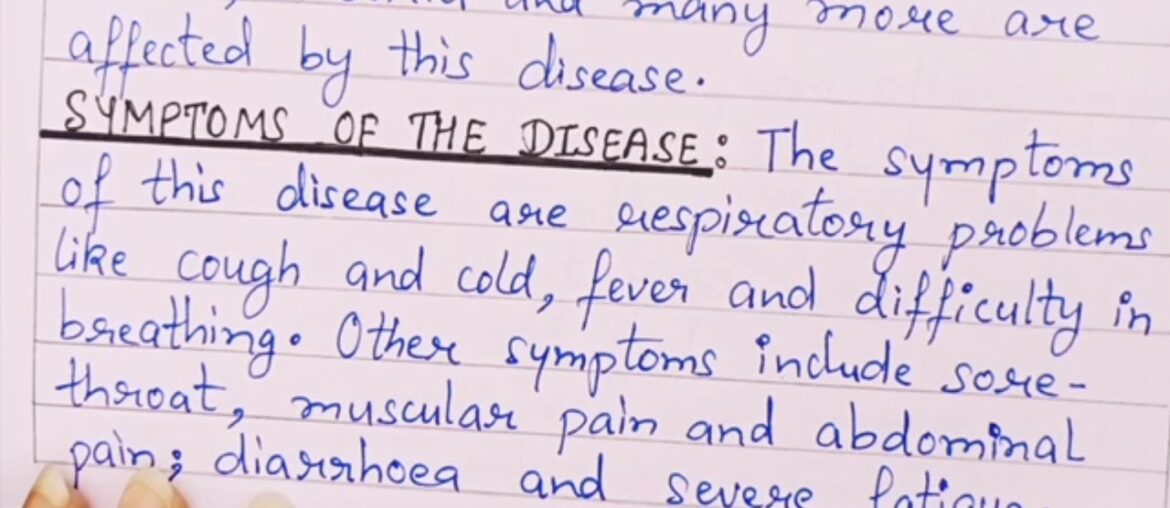 and many more are
affected by this disease.
SYMPTOMS OF THE DISEASE: The symptoms
of this disease are respiratory problems
like cough and cold, fever and difficulty in
breathing. Other symptoms include sore-
throat, muscular pain and abdominal
pain; diarrhoea and severe